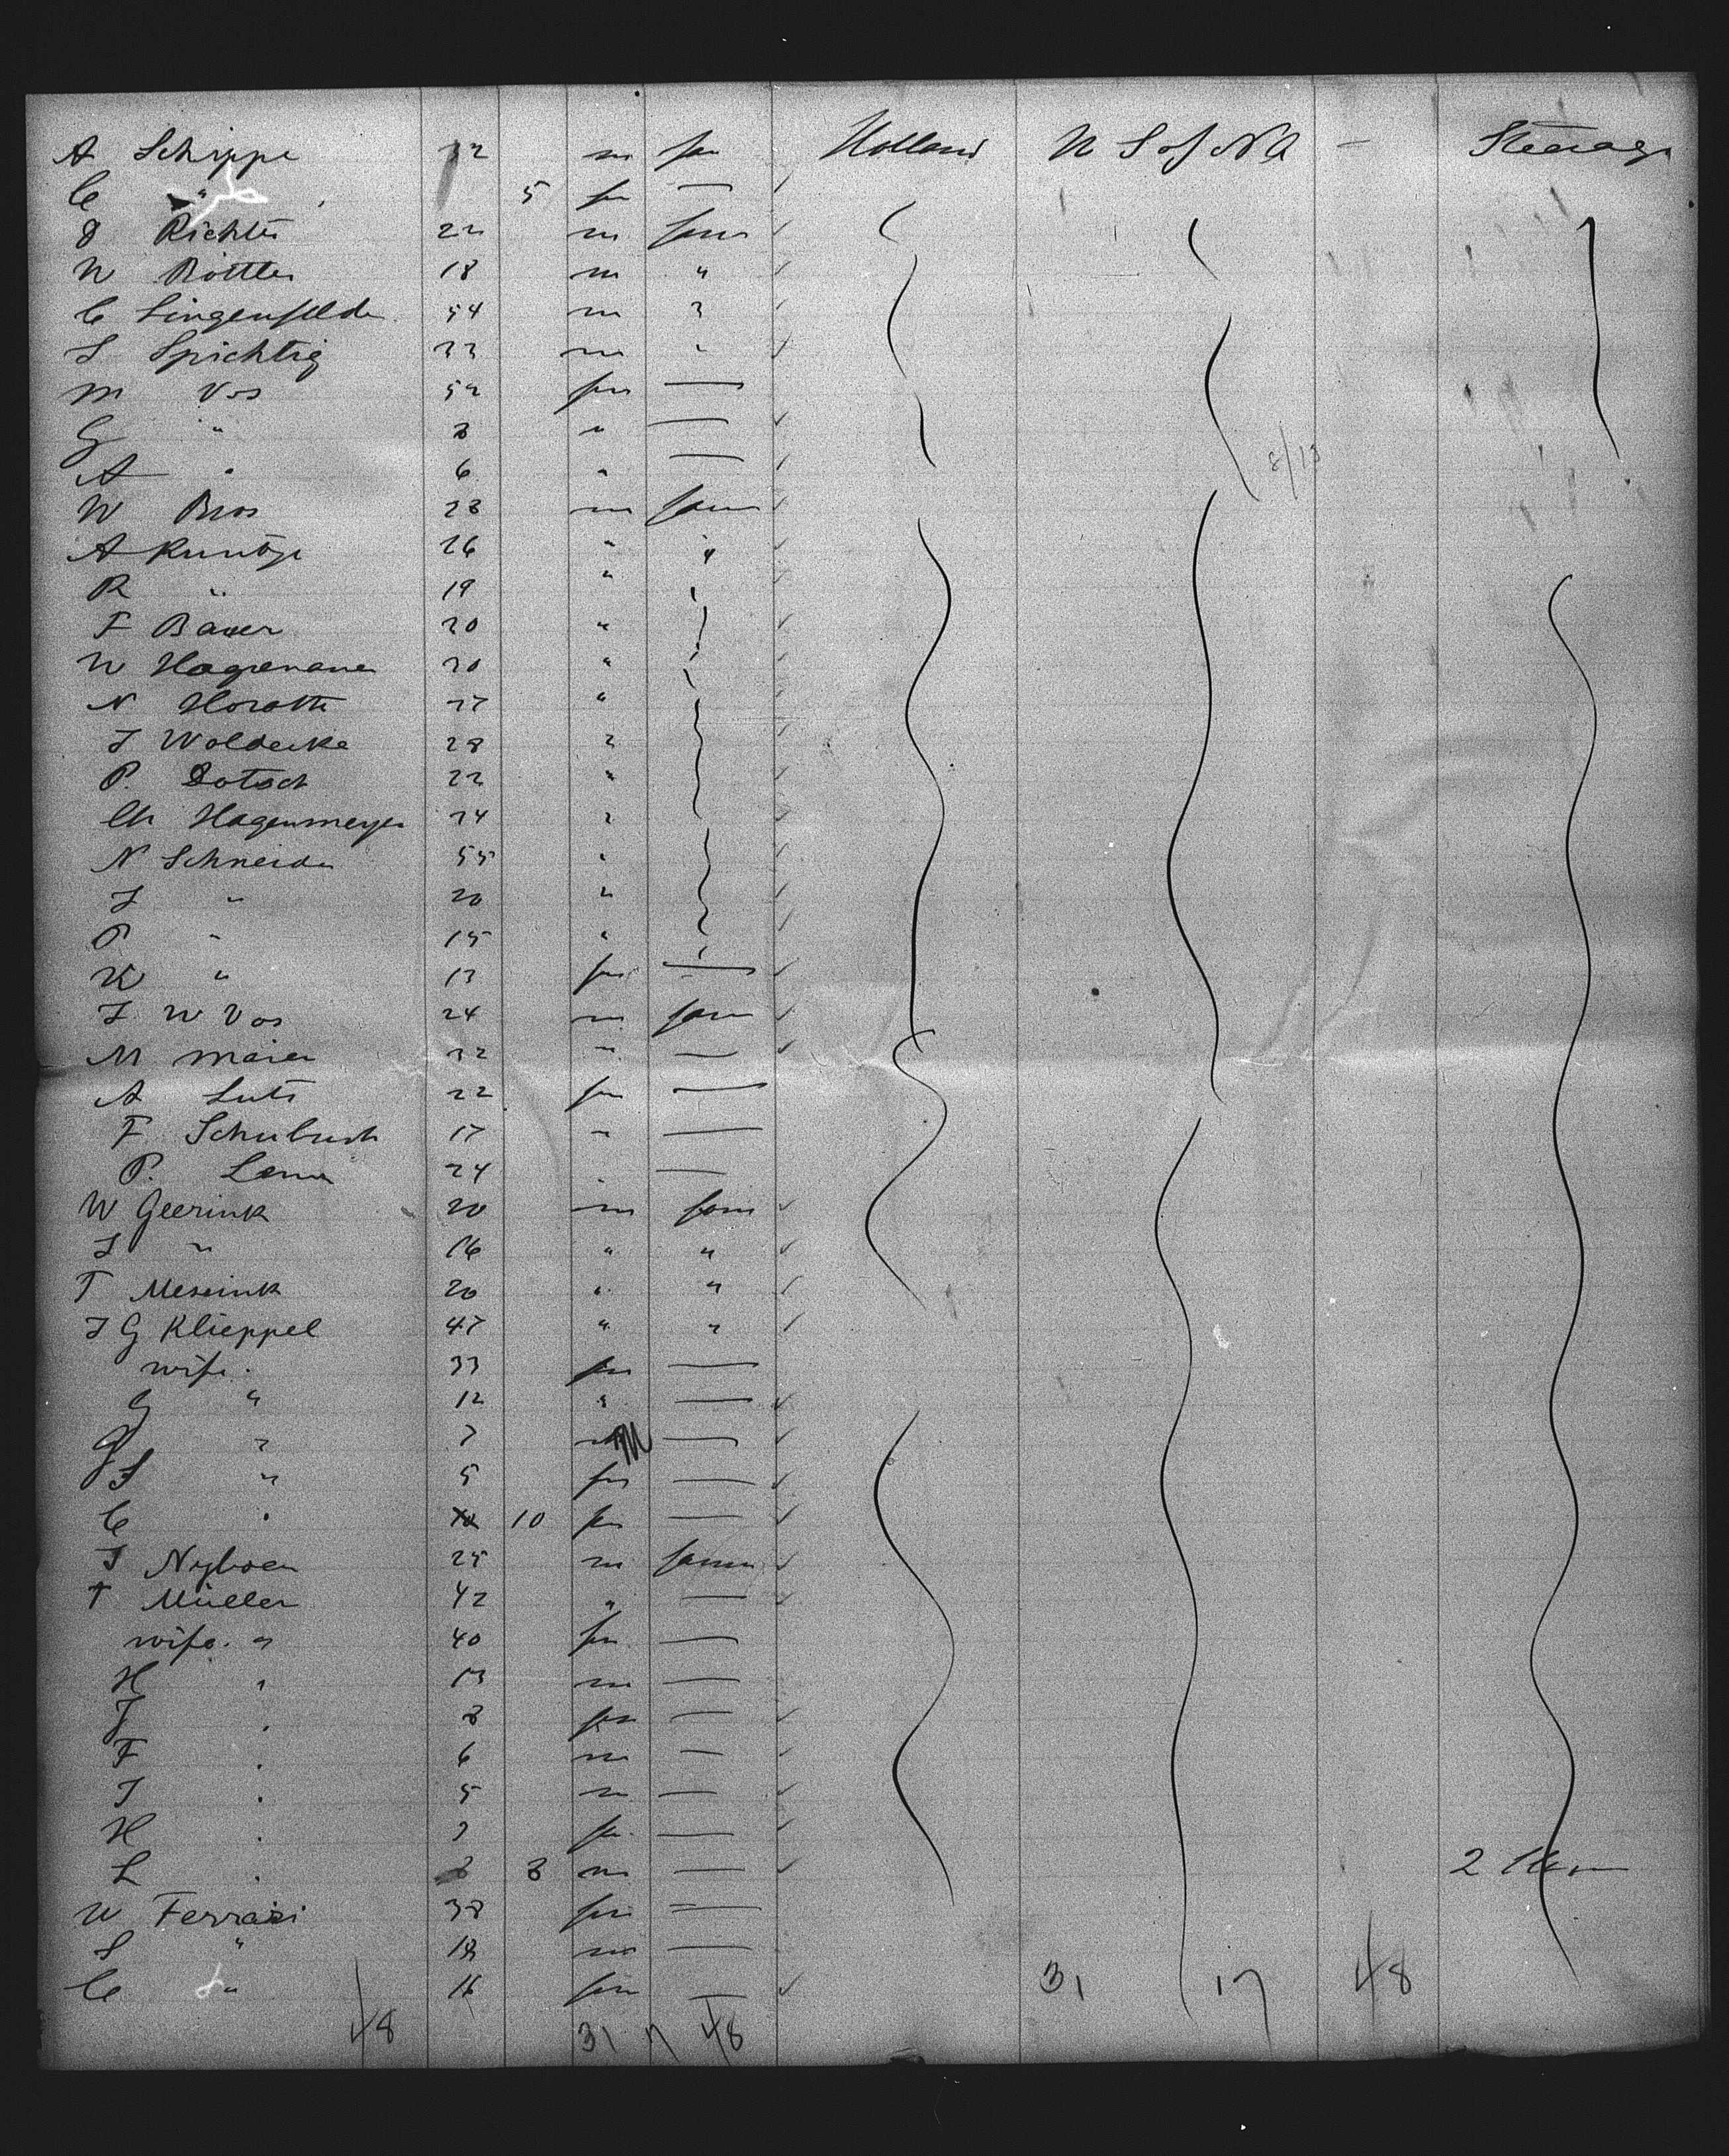 A Schippe 32 m far Holland U S of N A — Steerage
C " 5 fm —
D Richter 22 m farm
W Rottler 18 m "
C Lingenfelder 54 m "
S Spichtig 33 m "
M Vos 52 fm —
G " 8 " —
A " 6 " —
W Bros 28 m farm
A Kuntze 26 " "
R " 19 "
F Bauer 20 "
W Hagenauer 20 "
N Horatti 27 "
J Woldecke 28 "
P. Dotsch 22 "
Ch Hagenmeyer 24 "
N Schneider 55 "
J " 20 "
P " 15 "
K " 13 fm —
J W Vos 24 m farm
M Maier 32 " —
A Luti 22 fm —
F Schubush 17 " —
P. 24 " —
W Geerink 20 m farm
J " 16 " "
T Messink 20 " "
J G Klieppel 47 " "
wife " 33 fm —
G " 12 " —
G " 7 M —
J " 5 fm —
C " 10 fm —
J Nyboen 25 m farm
T Müller 42 " —
wife " 40 fm —
H " 13 m —
J " 8 fm —
F " 6 m —
J " 5 m —
H " 3 fm —
L " 8 m — 2
W Ferrari 38 fm —
S " 18 m —
C " 16 fm — 31 17 48
48 31 17 48